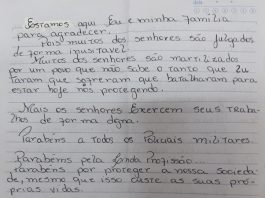 Estamos aqui Eu e minha família
para agradecer.
Pois muitos dos senhores são julgados
de forma injusta vel.
Muitos dos senhores são martirizados
por um povo que não sabe o tanto que lu
taram que sofreram que batalharam para
estar hoje nos protegendo.
Mais os senhores Exercem seus traba
lhos de forma digna.
Parabéns a todos os Policiais militares
Parabéns pela Linda Profissão...
Parabéns por proteger a nossa socieda
de, mesmo que isso custe as suas pró
prias vidas.